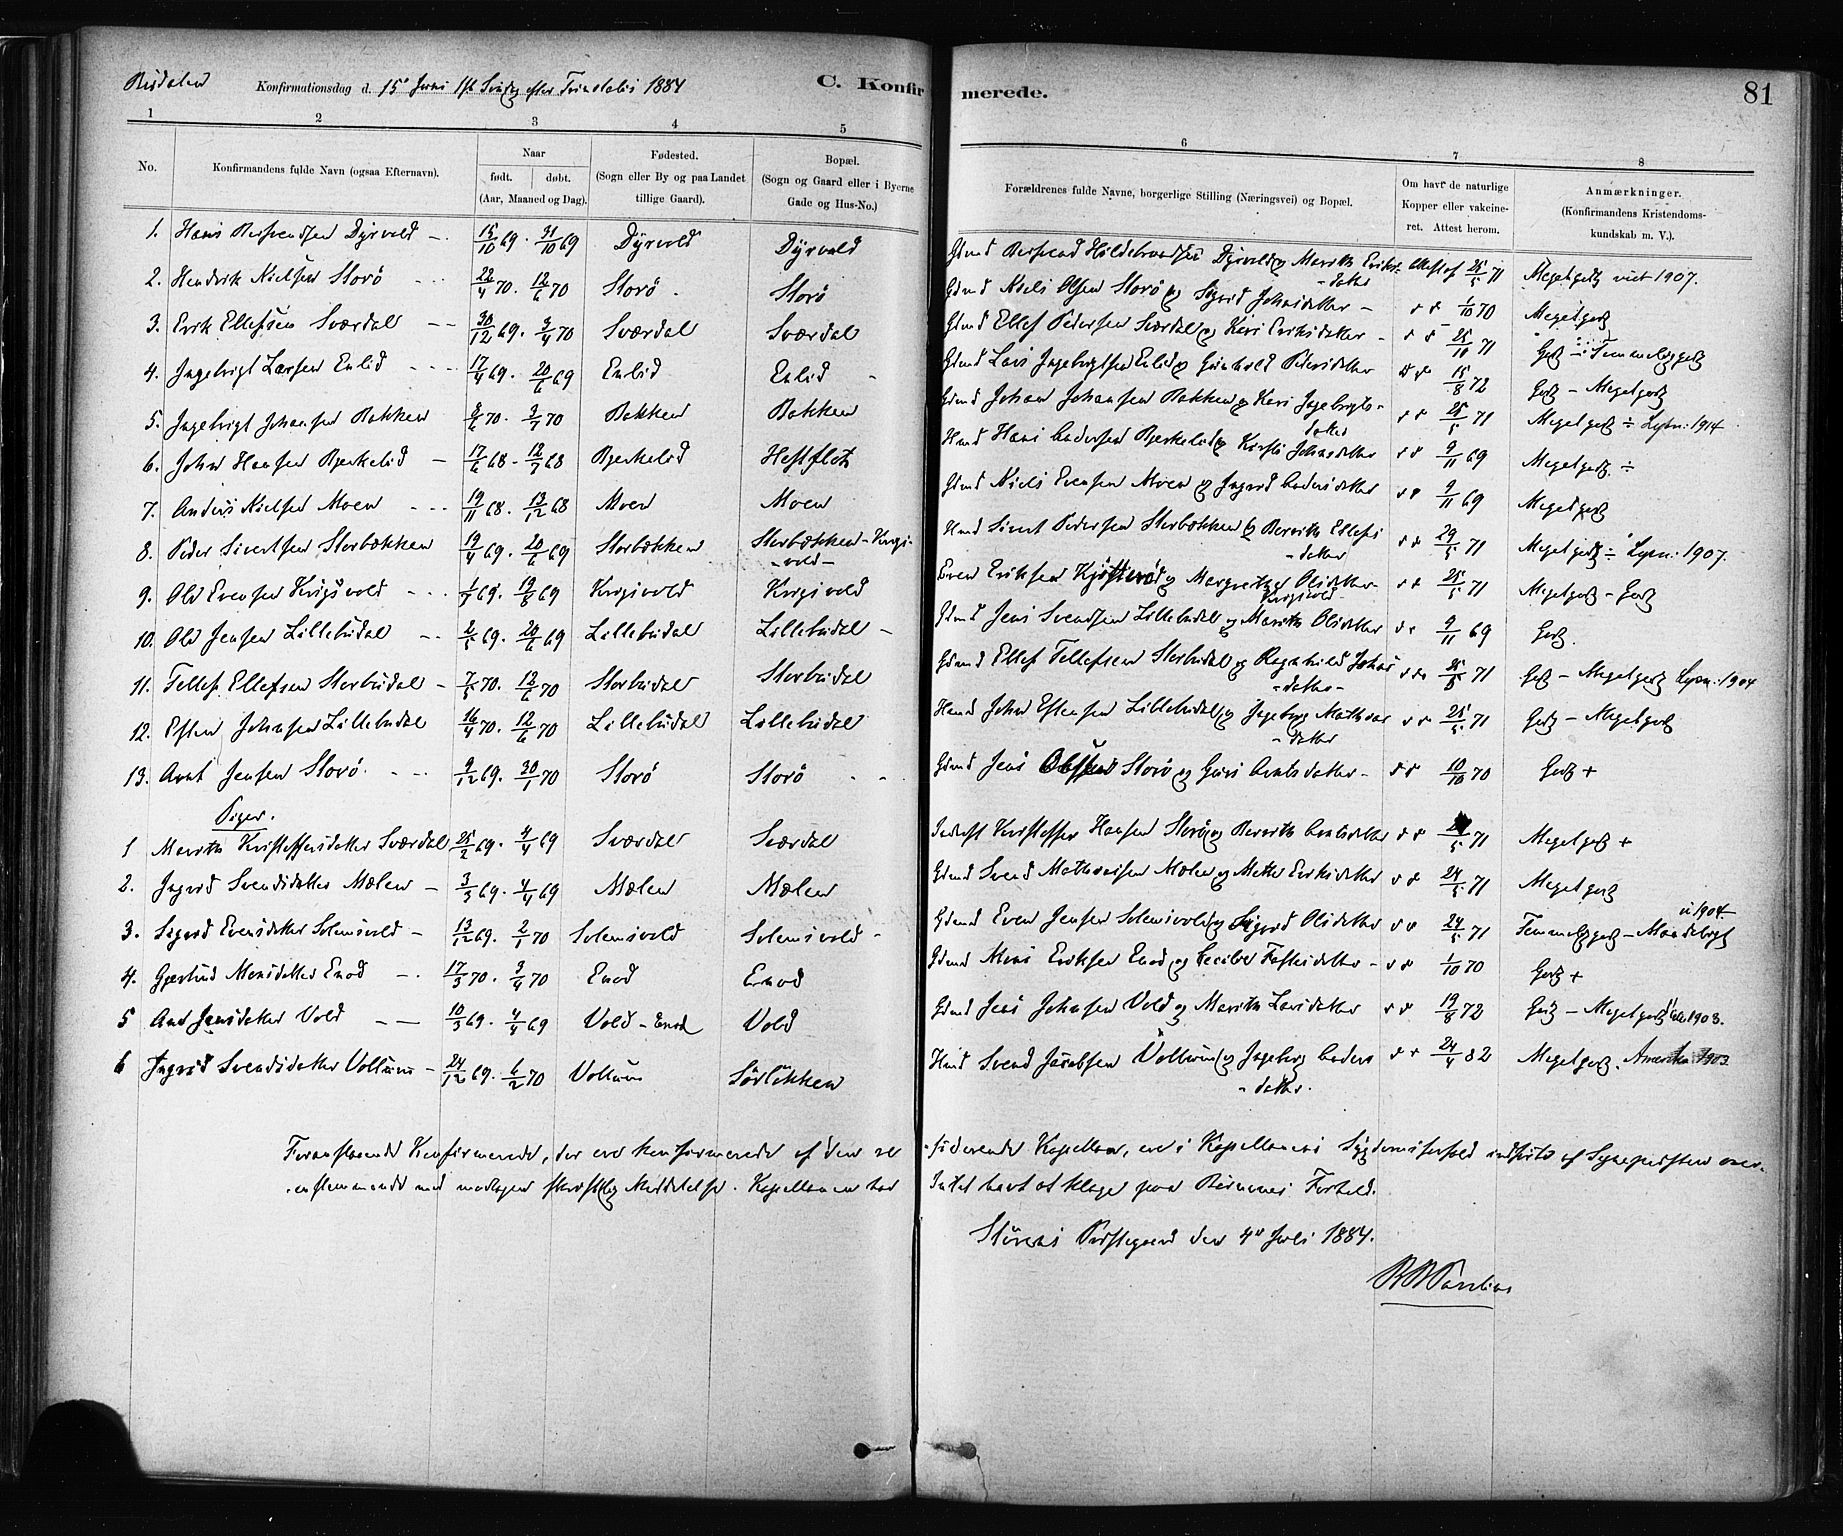 Konfirmationsdag d. 15de Juni 1ste Søndag efter Trinitatis 1884
C. Konfirmerede.
81
1 2 3 4 5 6 7 8
No.
Konfirmandens fulde Navn (ogsaa Efternavn).
Naar
født. døbt.
(Aar, Maaned og Dag).
Fødested.
(Sogn eller By og paa Landet
tillige Gaard).
Bopæl.
(Sogn og Gaard eller i Byerne
Gade og Hus-No.)
Forældrenes fulde Navne, borgerlige Stilling (Næringsvei) og Bopæl.
Om havt de naturlige
Kopper eller vakcine-
ret. Attest herom.
Anmærkninger.
(Konfirmandens Kristendoms-
kundskab m. V.).
1. Hans Dyrvold 15/10 69. 31/10 69 Dyrvold Dyrvold Hildebrandsen Dyrvold og Marith Eriks-datter Attest af 25/5 71 Meget godt 1907.
2. Hendrik Nielsen Storø 22/4 70. 12/6 70 Storø Storø Gbmd Niels Olsen Storø og Sigrid Johnsdatter 1/10 70 Meget godt
3. Erik Ellefsen Sværdal 30/12 69. 3/4 70 Sværdal Sværdal Gbmd Ellef Pedersen Sværdal og Kari Eriksdatter 25/10 71 Godt - Temmelig godt
4. Ingebrigt Larsen Enlid 17/4 69. 20/6 69 Enlid Enlid Gbmd Lars Ingebrigtsen Enlid og Gunhild Pedersdatter 15/8 72 Godt - Meget godt
5. Ingebrigt Johansen Bakken 70. 70 Bakken Bakken Gbmd Johan Johansen Bakken og Kari Ingebrigts-datter 25/5 71 Meget godt ÷ 1914
6. John Hansen Bjerkelid 17/6 68 - 12/7 68 Bjerkelid Hestflot Hmd Hans Andersen Bjerkelid og Kirsti Johnsdatter 9/11 69 Meget godt ÷
7. Anders Nielsen Moen 19/11 68. 13/12 68 Moen Moen Gbmd Niels Evensen Moen og Ingrid Andersdatter 9/11 69 Meget godt
8. Peder Sivertsen Storbækken 19/4 69. 20/6 69 Storbækken Storbækken - Krigs-vold - Hmd Sivert Pedersen Storbækken og Berith Ellefs-datter 29/5 71 Meget godt ÷ 1907.
9. Ole Evensen Krigsvold 69. 69 Krigsvold Krigsvold Even Eriksen og Margrethe Olsdatter Krigsvold 25/5 71 Meget godt - Godt
10. Ole Jensen Lillebudal 2/5 69. 20/6 69 Lillebudal Lillebudal Gbmd Jens Svendsen Lillebudal og Marith Olsdatter 9/11 69 Godt.
11. Tellef Ellefsen Storbudal 7/5 70. 12/6 70 Storbudal Storbudal Gbmd Ellef Tellefsen Storbudal og Ragnhild Johns-datter 25/5 71 Godt - Meget godt 1904
12. Esten Johnsen Lillebudal 16/4 70. 12/6 70 Lillebudal Lillebudal Hmd John Estensen Lillebudal og Ingeborg -datter 25/5 71 Godt - Meget godt
13. Arnt Jensen Storø 9/12 69. 30/1 70 Storø Storø Gbmd Jens Storø og Guri Arntsdatter 10/10 70 Godt +
Piger.
1 Marith Kristoffersdatter Sværdal 25/2 69. 4/4 69 Sværdal Sværdal Kristoffer Hansen Storø og Berith Arntsdatter 71 Meget godt +
2. Ingrid Svendsdatter Mælen 3/3 69. 4/4 69 Mælen Mælen Gbmd Svend Mælen og Mette Eriksdatter 24/5 71 Meget godt
3. Sigrid Evensdatter Solemsvold 13/12 69. 2/1 70 Solemsvold Solemsvold Gbmd Even Jensen Solemsvold og Sigrid Olsdatter 24/5 71 Temmelig godt 1904
4. Gjertrud Monsdatter Enod 17/3 70. 3/4 70 Enod Enod Gbmd Mons Eriksen Enod og 1/10 70 Godt +
5 Ane Jensdatter Vold 10/3 69. 4/4 69 Vold - Enod Vold Gbmd Jens Johnsen Vold og Marith Larsdatter 19/8 72 Godt - Meget godt 1903.
6 Ingrid Svendsdatter Vollum 24/12 69. 6/2 70 Vollum Sørløkken Hmd Svend Jacobsen Vollum og Ingeborg Anders-datter. 24/4 82 Meget godt. Amerika 1903
Foranstaaende Konfirmerede, der ere konfirmerede af den re-siderende Kapellan, ere i Kapellanens Sygdomsforfald indførte af Sognepresten over-
ensstemmende med modtagen skriftlig Meddelelse. Kapellanen har Intet havt at klage paa Børnenes Forhold.
Størens Prestegaard den 4de Juli 1884.